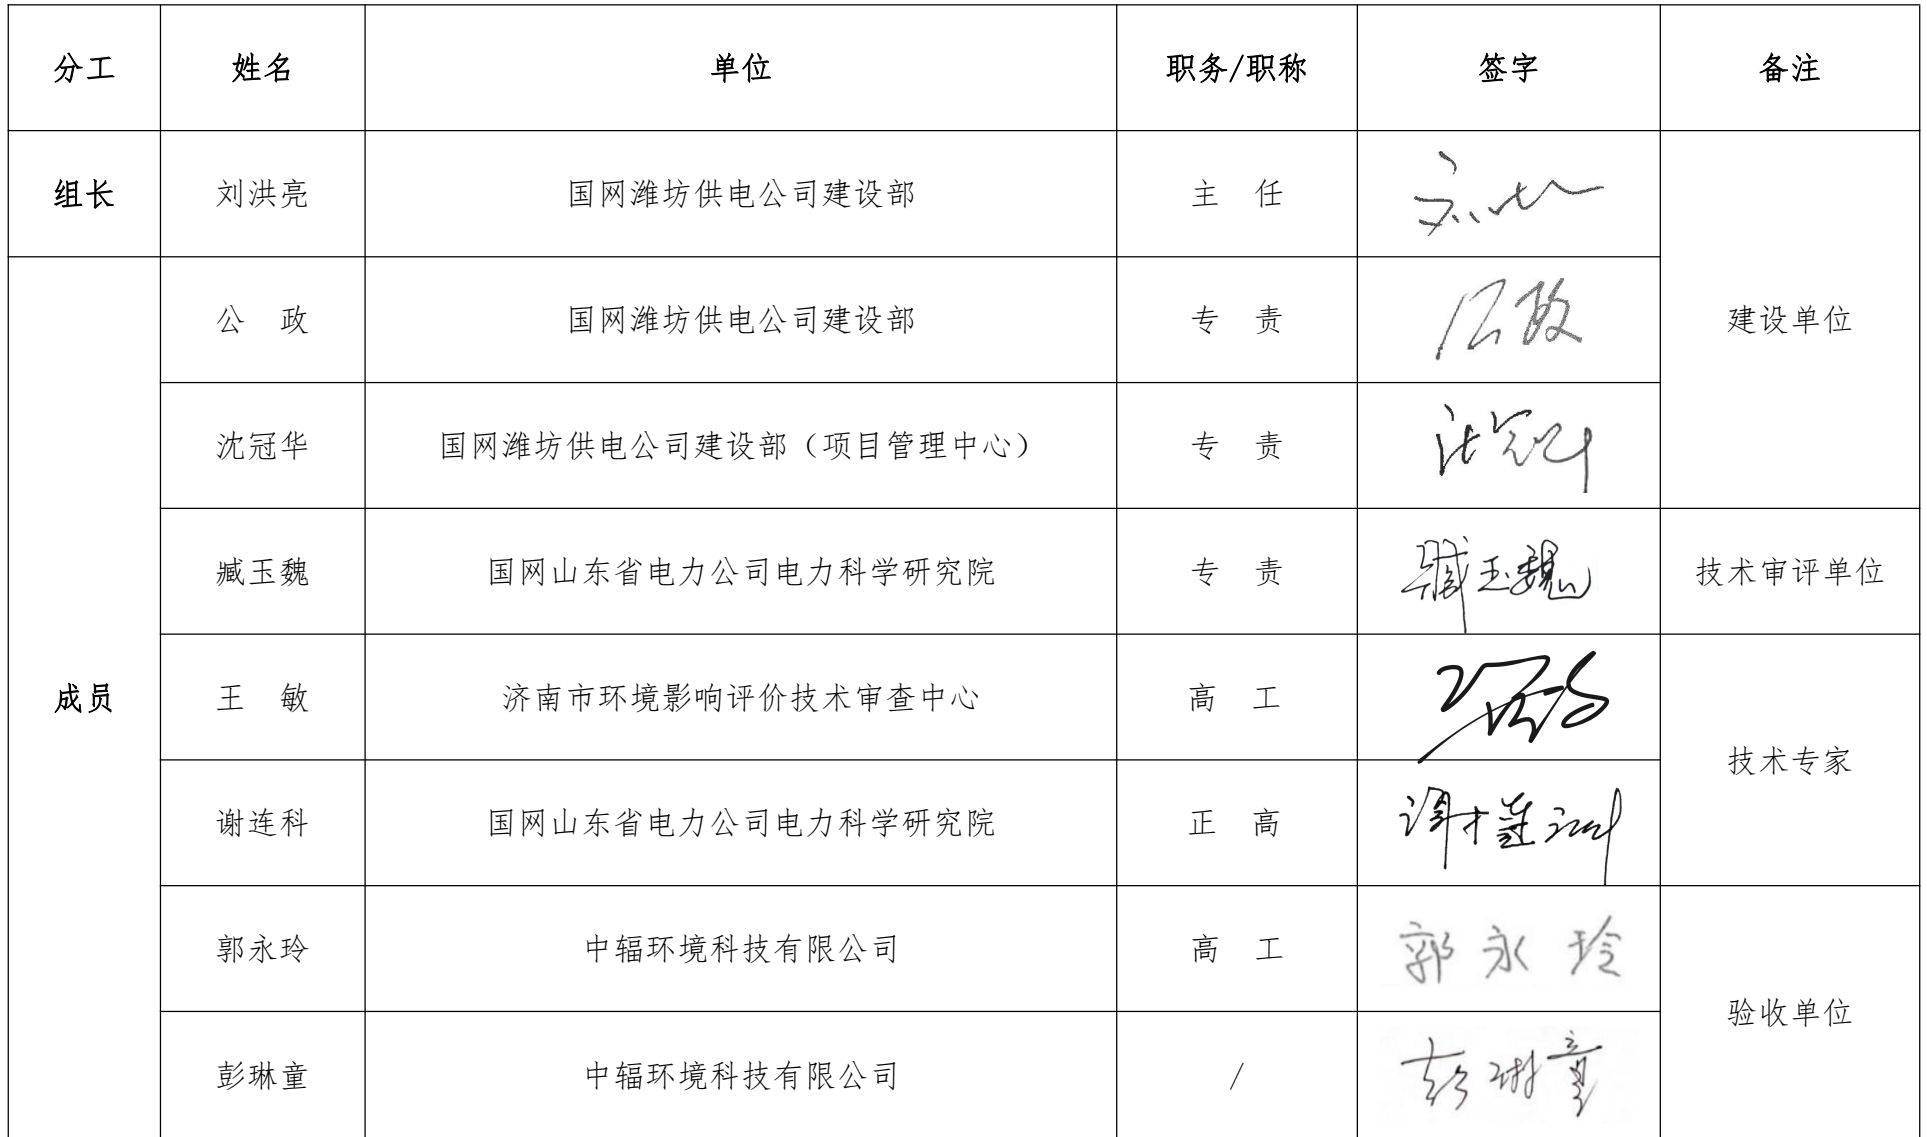 分工 姓名 单位 职务/职称 签字 备注
组长 刘洪亮 国网潍坊供电公司建设部 主 任
公 政 国网潍坊供电公司建设部 专 责 公政 建设单位
沈冠华 国网潍坊供电公司建设部（项目管理中心） 专 责 沈冠华
臧玉魏 国网山东省电力公司电力科学研究院 专 责 臧玉魏 技术审评单位
成员 王 敏 济南市环境影响评价技术审查中心 高 工
技术专家
谢连科 国网山东省电力公司电力科学研究院 正 高
郭永玲 中辐环境科技有限公司 高 工 郭永玲
验收单位
彭琳童 中辐环境科技有限公司 / 彭琳童